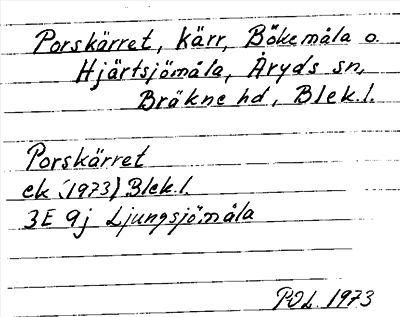 Porskärret, kärr, Bökemåla o.
Hjärtsjömåla, Åryds sn,
Bräkne hd, Blek.l.
Porskärret
ek (1973) Blek.l.
3E 9j Ljungsjömåla
POL. 1973